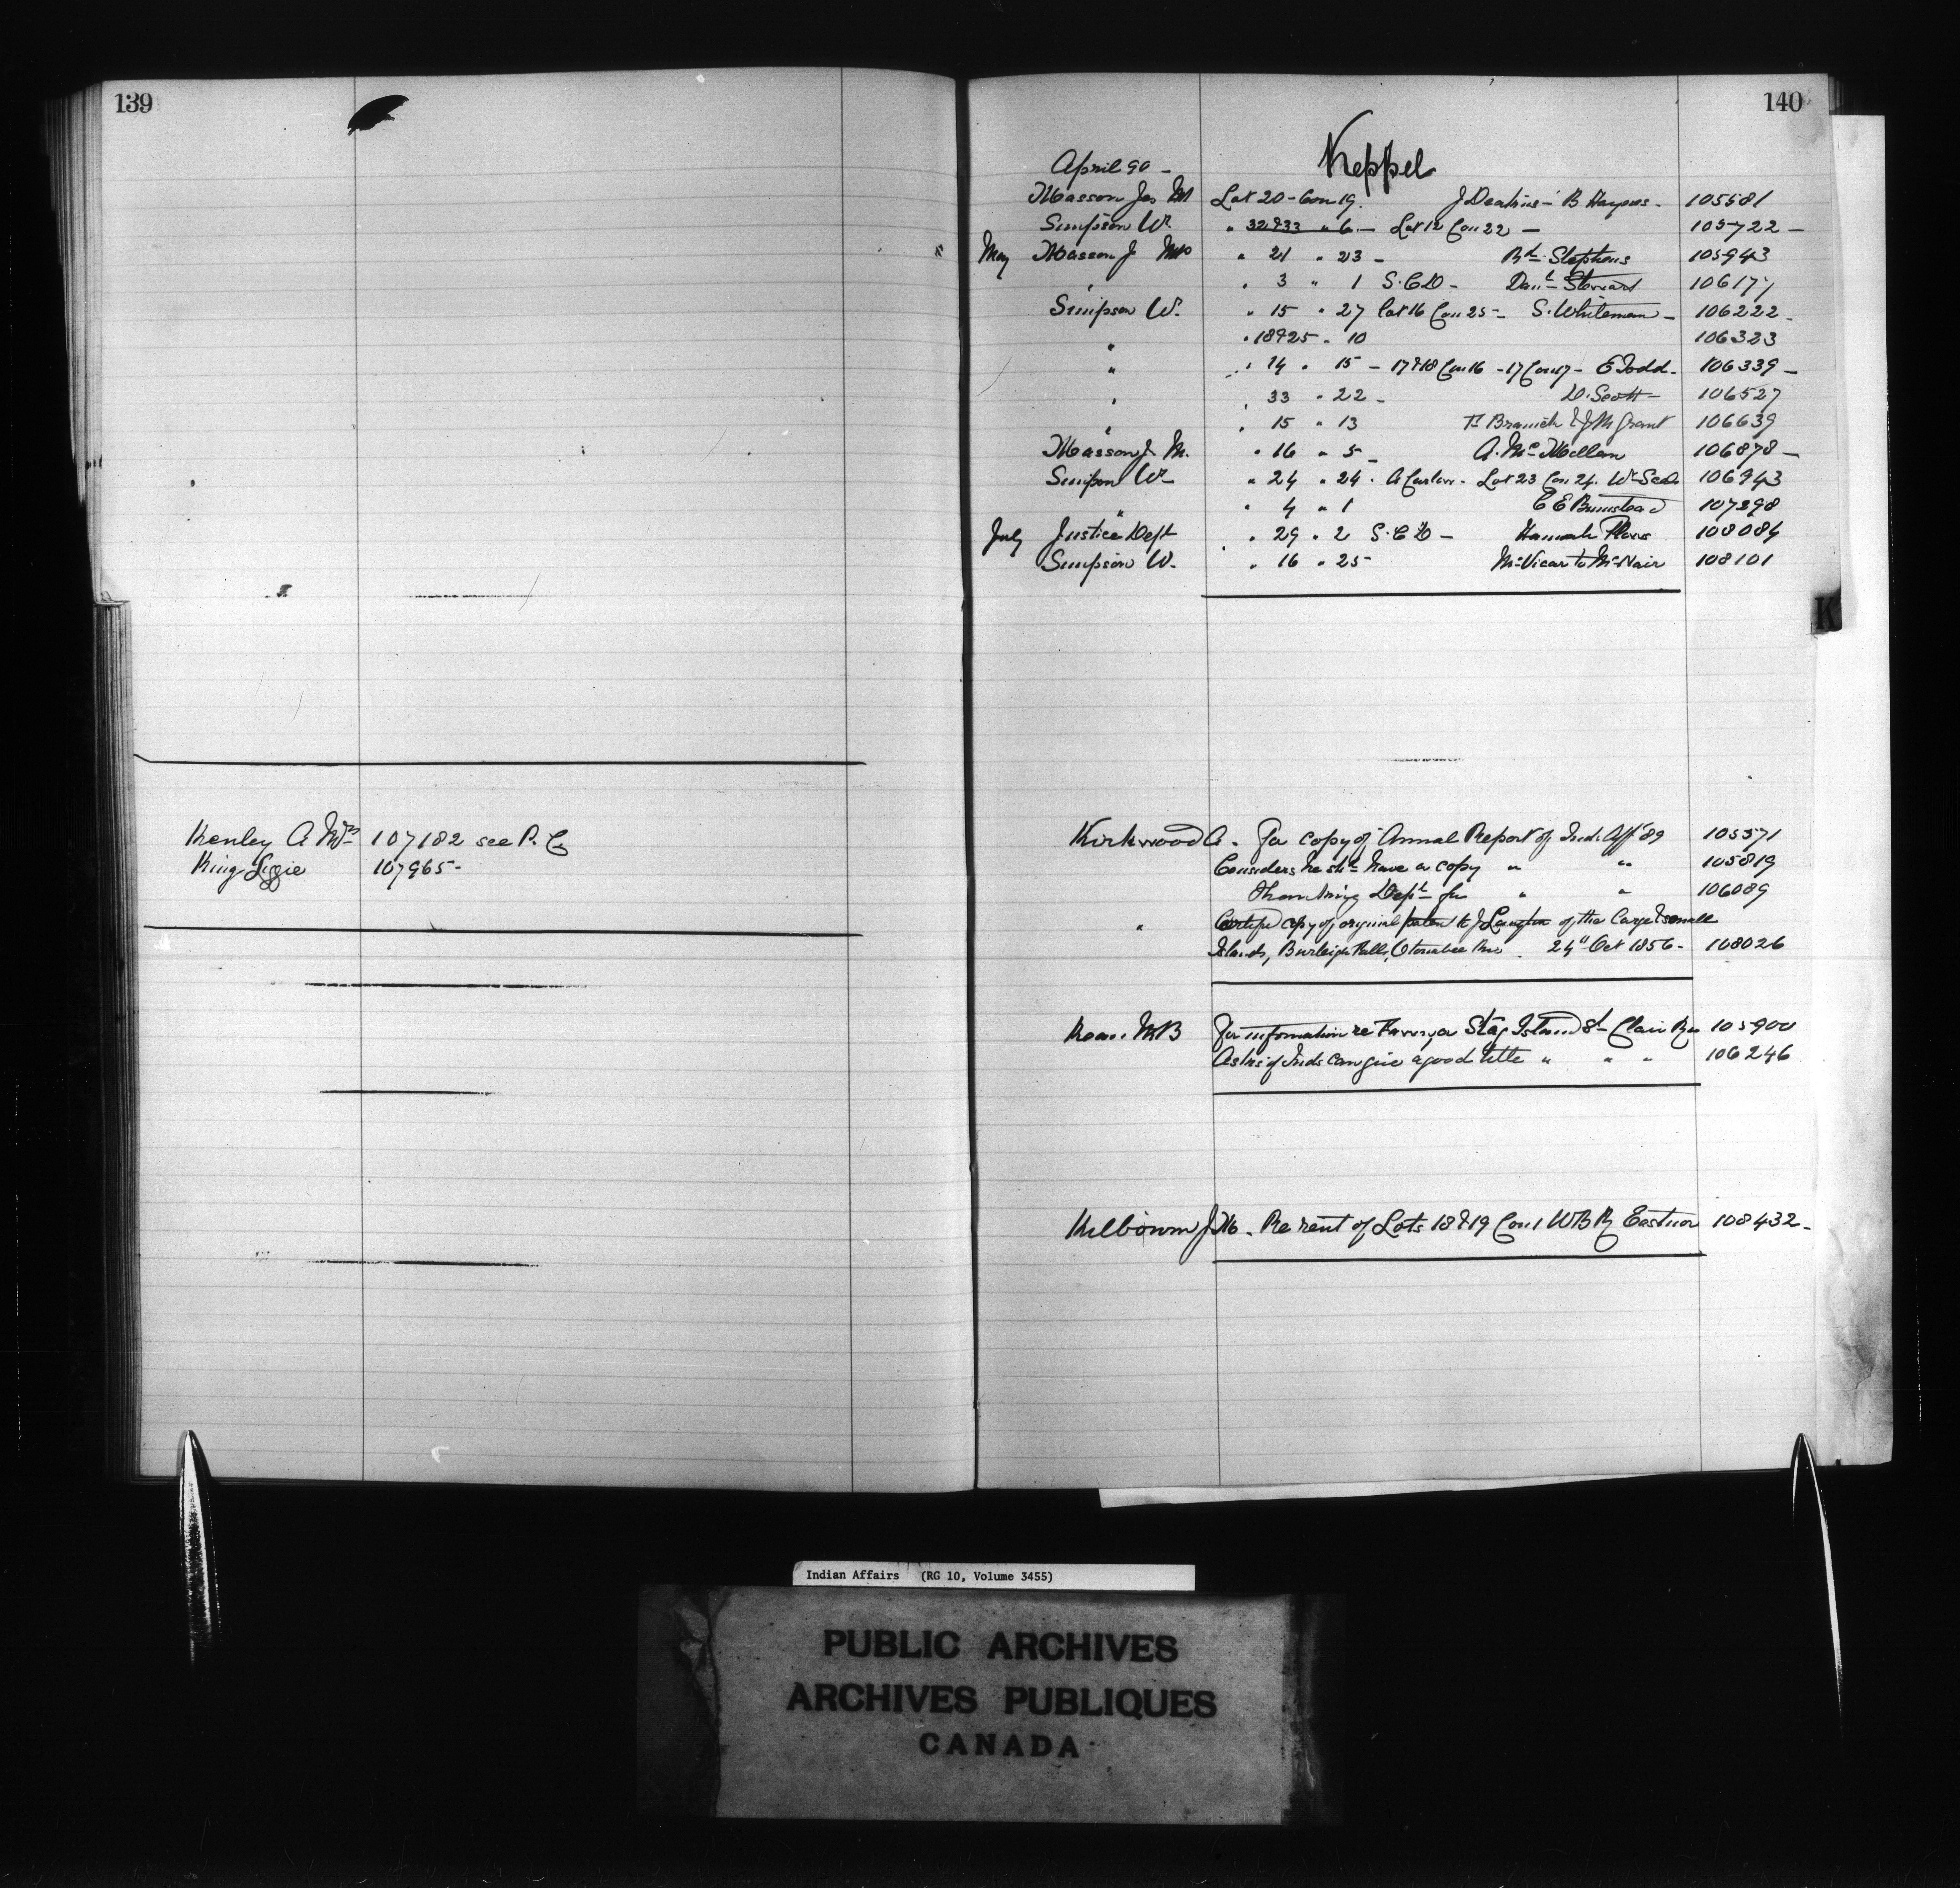 139
Kenley A Mrs 107182 see P. C.
King Lizzie 107965-
140
Keppel
April 90 -
Masson Jas M Lot 20 - Con 19. J Deakins - B Haynes - 105581
Simpson W. " 32 & 33 " 6 - Lot 12 Con 22 - 105722 -
May Masson J M " 21 " 23 - Rd. Stephens 105943
" " 3 " 1 S.C.D - Danl Stewart 106177
Simpson W. " 15 " 27 Lot 16 Con 25 - S. Whiteman - 106222 -
" " 18 & 25 " 10 106323
" " 14 " 15 - 17 & 18 Con 16 - 17 Con 17 - E Todd - 106339 -
" " 33 " 22 - D. Scott - 106527
" " 15 " 13 & J M Grant 106639
Masson J. M. " 16 " 5 - A. McMillan 106878 -
Simpson W " 24 " 24 - A Carlow - Lot 23 Con 24. Wm 106943
" " 4 " 1 C E Bumstead 107298
July Justice Dept " 29 " 2 S.C.D - Hannah 108084
Simpson W. " 16 " 25 - McVicar to McNair 108101
K
Kirkwood A. For copy of Annual Report of Ind. Aff. '89 105571
Considers he shd have a copy " " 105819
Thanking Dept for " " 106089
" Certified copy of original patent to J Langton of the large & small
Islands, Burleigh Falls, Otonabee Riv. 24" Oct 1856 - 108026
M B For information re Stag Island St Clair Riv 105900
Asks if Inds can give a good title " " " 106246
Kilbourn J M. Re rent of Lots 18 & 19 Con 1 W B R Eastnor 108432 -
Indian Affairs (RG 10, Volume 3455)
PUBLIC ARCHIVES
ARCHIVES PUBLIQUES
CANADA